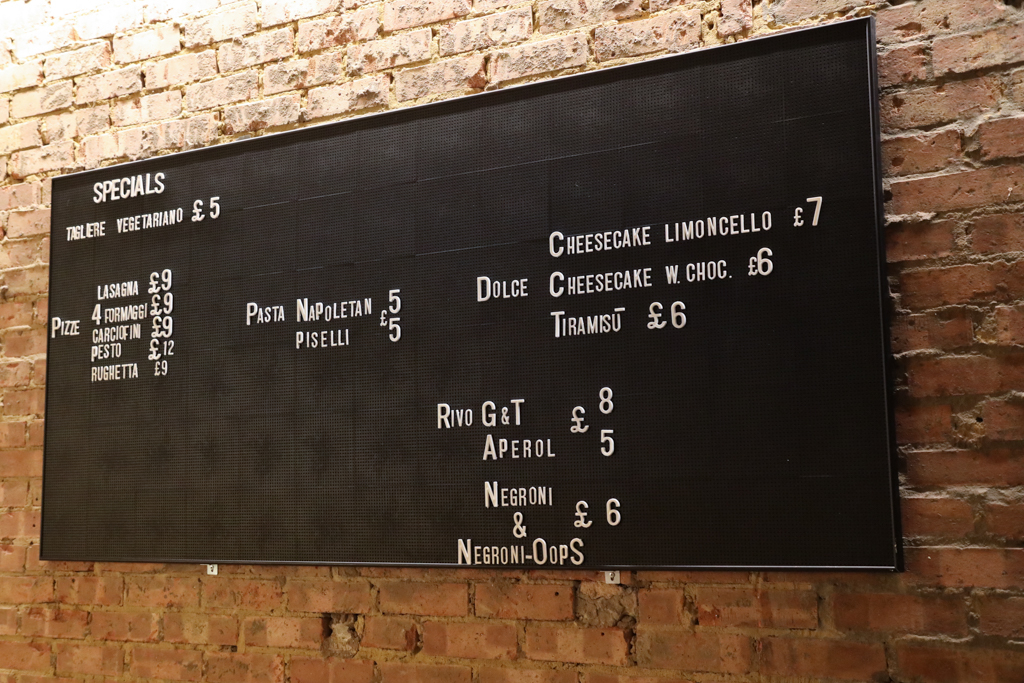 SPECIALS
TAGLIERE VEGETARIANO £5
PIZZE
LASAGNA £9
4 FORMAGGI £9
CARCIOFINI £9
PESTO £12
RUGHETTA £9
PASTA NAPOLETAN £5
PISELLI 5
DOLCE
CHEESECAKE LIMONCELLO £7
CHEESECAKE W. CHOC. £6
TIRAMISŪ £6
RIVO G&T £ 8
APEROL 5
NEGRONI
& £ 6
NEGRONI-OOPS